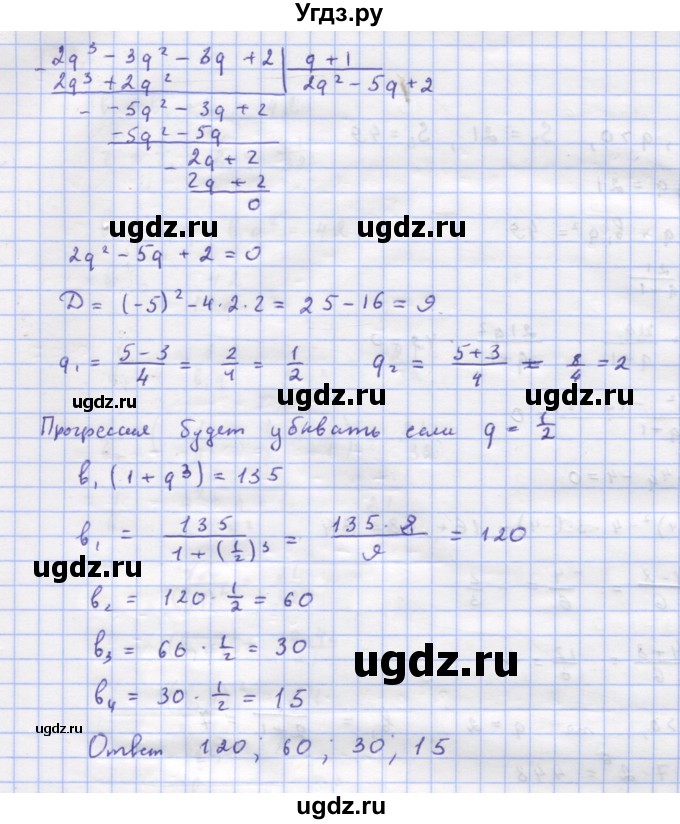 Угдз.ру
2q³ - 3q² - 3q + 2 | q + 1
2q³ + 2q² 2q² - 5q + 2
- -5q² - 3q + 2
-5q² - 5q
- 2q + 2
2q + 2
0
ugdz.ru ugdz.ru
2q² - 5q + 2 = 0
D = (-5)² - 4·2·2 = 25 - 16 = 9
q₁ = (5-3)/4 = 2/4 = 1/2 q₂ = (5+3)/4 = 8/4 = 2
ugdz.ru ugdz.ru
Прогрессия будет убывать если q = 1/2
b₁ (1 + q³) = 135
b₁ = 135/(1+(1/2)³) = (135·8)/9 = 120
ugdz.ru
b₂ = 120 · 1/2 = 60
b₃ = 60 · 1/2 = 30
ugdz.ru
b₄ = 30 · 1/2 = 15
ugdz.ru
Ответ 120; 60; 30; 15
ugdz.ru